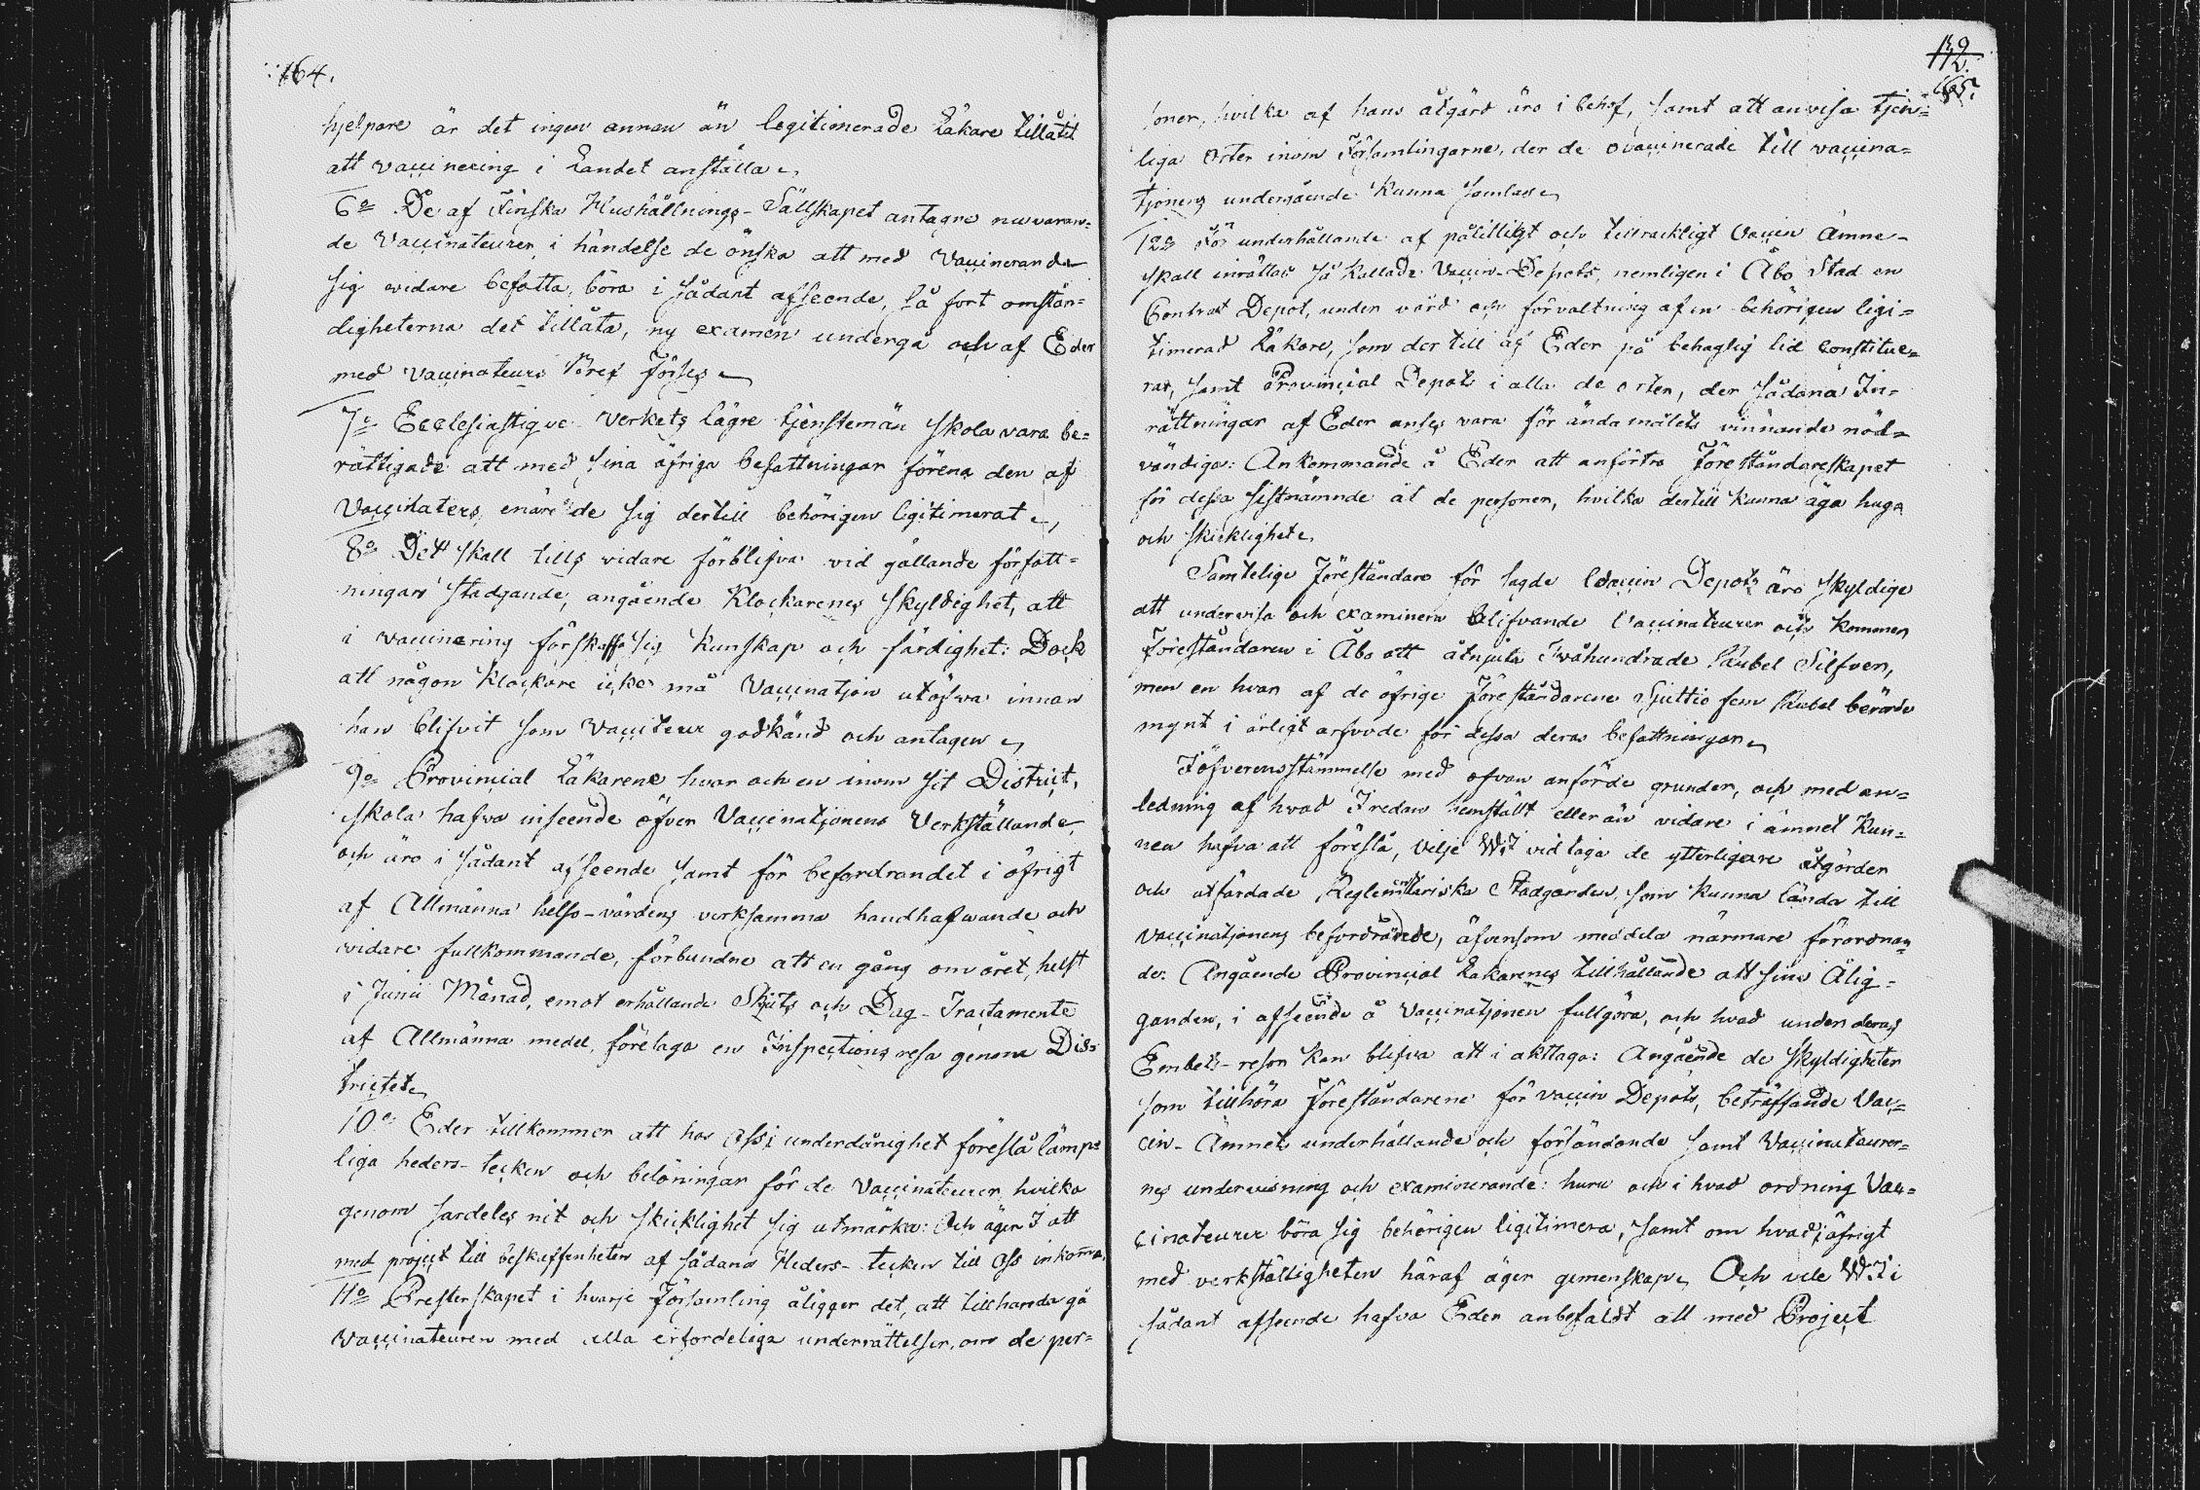 164.
hjelpare är det ingen annan än legitimerade Läkare tillåtit
att vaccinering i Landet anställa.
6o De af Finska Hushållnings-Sällskapet antagne nuvaran=
de Vaccinateurer, i händelse de önska att med Vaccinerande
sig vidare befatta, böra i sådant afseende, så fort omstän=
digheterna det tillåta, ny examen undergå och af Eder
med vaccinateurs Bref förses.
7o Ecclesiastique Verkets lägre tjenstemän skola vara be=
rättigade att med sina öfriga befattningar förena den af
Vaccinaters, enär de sig dertill behörigen legitimerat.
8o Det skall tills vidare förblifva vid gällande författ=
ningars stadgande, angående Klockarenes skyldighet, att
i vaccinering förskaffa sig kunskap och färdighet: Dock
att någon Klockare icke må Vaccination utöfwa innan
han blifvit som Vacciteur godkänd och antagen.
9o Provincial Läkarene hvar och en inom sit District,
skola hafva inseende öfver Vaccinationens Verkställande,
och äro i sådant afseende samt för befordrandet i öfrigt
af Allmänna helso-vårdens verksamma handhafwande och
vidare fullkommande, förbundne att en gång om året, helst
i Junii Månad, emot erhållande Skjuts och Dag-Tractamente
af Allmänna medel, företaga en Inspections resa genom Dis=
trictet.
10o Eder tillkommer att hos Oss i underdånighet föreslå lämp=
liga heders-tecken och belöningar för de Vaccinateurer, hvilka
genom särdeles nit och skicklighet sig utmärka: Och ägen I att
med project till beskaffenheten af sådana Heders-tecken till Oss inkomma.
11o Presterskapet i hvarje Församling åligger det, att tillhanda gå
Vaccinateuren med alla erfordeliga underrättelser, om de per=
165.
soner, hvilka af hans åtgärd äro i behof, samt att anvisa tjen=
liga Orter inom Församlingarne, der de ovaccinerade till vaccina=
tjonens undergående kunna samlas.
12o För underhållande af pålitligt och tillräckligt Vaccin Ämne
skall inrättas så kallade Vaccin-Depots, nemligen i Åbo Stad en
Central Depot, under vård och förvaltning af en behörigen legi=
timerad Läkare, som der till af Eder på behaglig tid constitue=
ras, samt Provincial Depots i alla de orter, der sådana In=
rättningar af Eder anses vara för ändamålets vinnande nöd=
vändiga: Ankommande å Eder att anförtro Föreståndareskapet
för dessa sistnämnde åt de personer, hvilka dertill kunna äga håga
och skicklighet.
Samtelige Föreståndare för sagde Vaccin Depots äro skyldige
att undervisa och examinera blifvande Vaccinateurer och kommer
Föreståndaren i Åbo att åtnjuta Tvåhundrade Rubel Silfver,
men en hvar af de öfrige Föreståndarene Sjuttio fem Rubel berörde
mynt i årligt arfvode för dessa deras befattningar.
I öfverensstämmelse med ofvan anförde grunder, och med an=
ledning af hvad I redan hemställt eller än vidare i ämnet kun=
nen hafva att föreslå, vilje Wi vidtaga de ytterligare åtgärder
och utfärdade Reglementariska Stadganden, som kunna lända till
vaccinationens befordrande, äfvensom meddela närmare förordnan=
de: Angående Provincial Läkarenes tillhållande att sine Ålig=
ganden, i afseende å Vaccinationen fullgöra, och hvad under deras
Embets-resor kan blifva att i akttaga: Angående de skyldigheter
som tillhöra Föreståndarene för vaccin Depots, beträffande Vac=
cin-Ämnets underhållande och försändande samt Vaccinateurer=
nes undervisning och examinerande: huru och i hvad ordning Vac=
cinateurer böra sig behörigen legitimera, samt om hvad i öfrigt
med verkställigheten häraf äger gemenskap. Och vele Wi i
sådant afseende hafva Eder anbefaldt att med Project